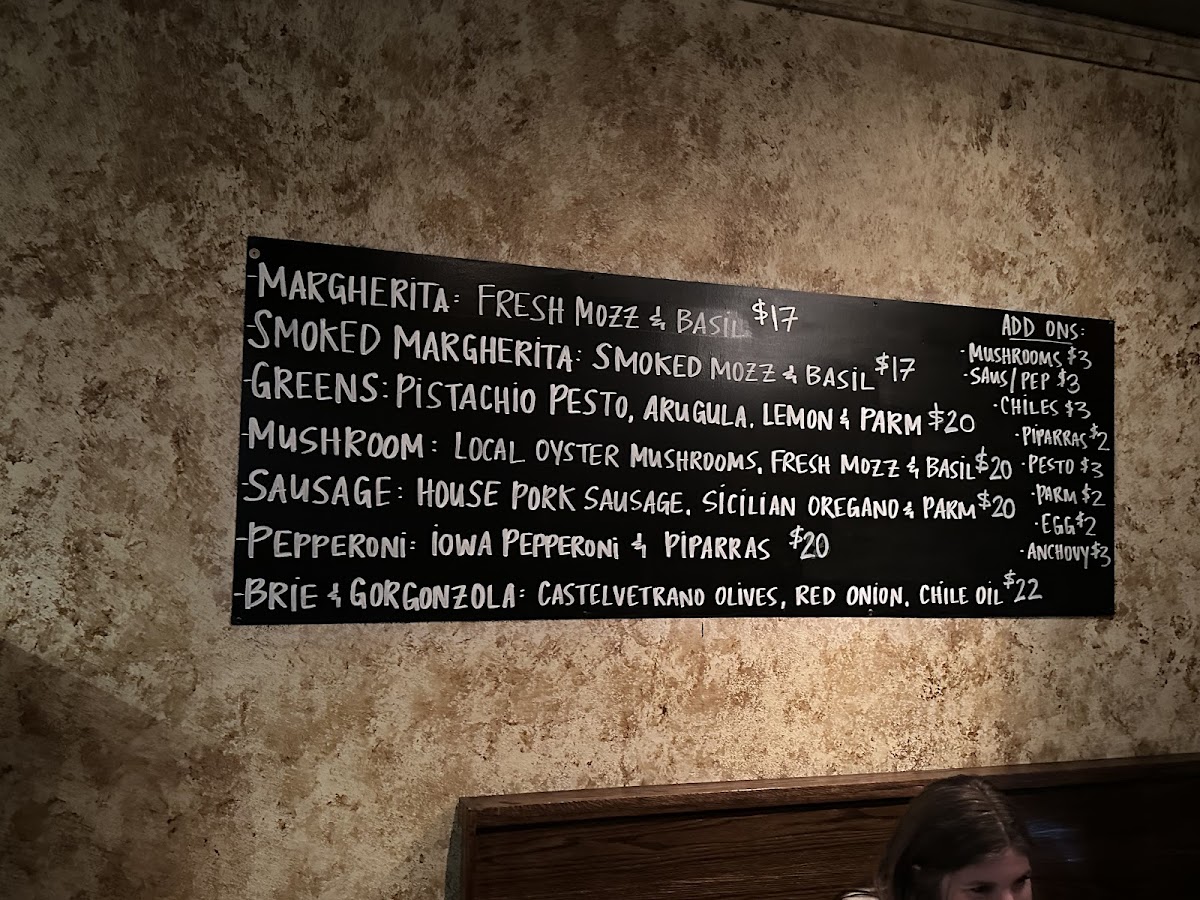 -MARGHERITA: FRESH MOZZ & BASIL $17
-SMOKED MARGHERITA: SMOKED MOZZ & BASIL $17
-GREENS: PISTACHIO PESTO, ARUGULA, LEMON & PARM $20
-MUSHROOM: LOCAL OYSTER MUSHROOMS, FRESH MOZZ & BASIL $20
-SAUSAGE: HOUSE PORK SAUSAGE, SICILIAN OREGANO & PARM $20
-PEPPERONI: IOWA PEPPERONI & PIPARRAS $20
-BRIE & GORGONZOLA: CASTELVETRANO OLIVES, RED ONION, CHILE OIL $22
ADD ONS:
·MUSHROOMS $3
·SAUS/PEP $3
·CHILES $3
·PIPARRAS $2
·PESTO $3
·PARM $2
·EGG $2
·ANCHOVY $3